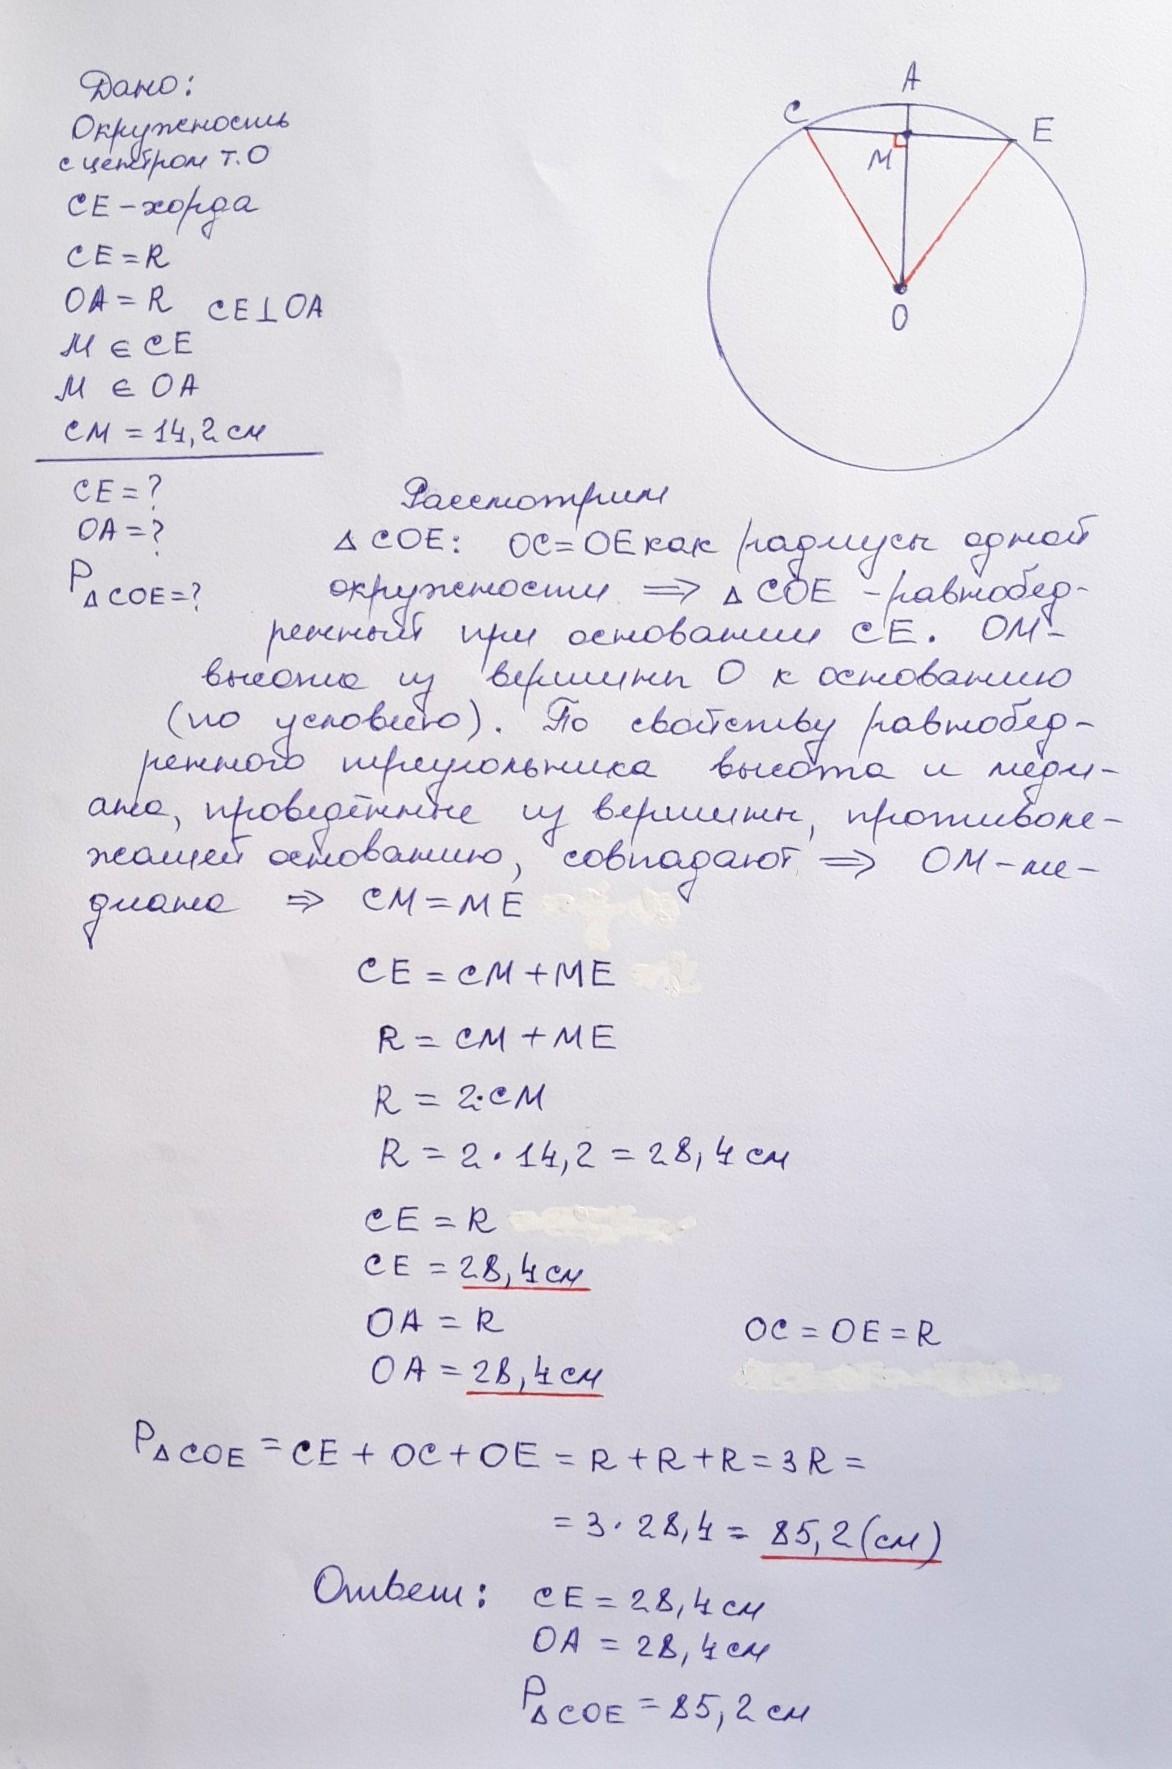 Дано:
Окружность
с центром т. О
CE - хорда
CE = R
OA = R CE⊥OA
M ∈ CE
M ∈ OA
CM = 14,2 см
CE = ?
OA = ?
P△COE = ?
A
C
E
M
O
Рассмотрим
△COE: OC = OE как радиусы одной
окружности ⇒ △COE - равнобед-
ренный при основании CE. OM -
высота из вершины O к основанию
(по условию). По свойству равнобед-
ренного треугольника высота и меди-
ана, проведённые из вершины, противоле-
жащей основанию, совпадают ⇒ OM - ме-
диана ⇒ CM = ME
CE = CM + ME
R = CM + ME
R = 2·CM
R = 2 · 14,2 = 28,4 см
CE = R
CE = 28,4 см
OA = R OC = OE = R
OA = 28,4 см
P△COE = CE + OC + OE = R + R + R = 3R =
= 3 · 28,4 = 85,2 (см)
Ответ: CE = 28,4 см
OA = 28,4 см
P△COE = 85,2 см